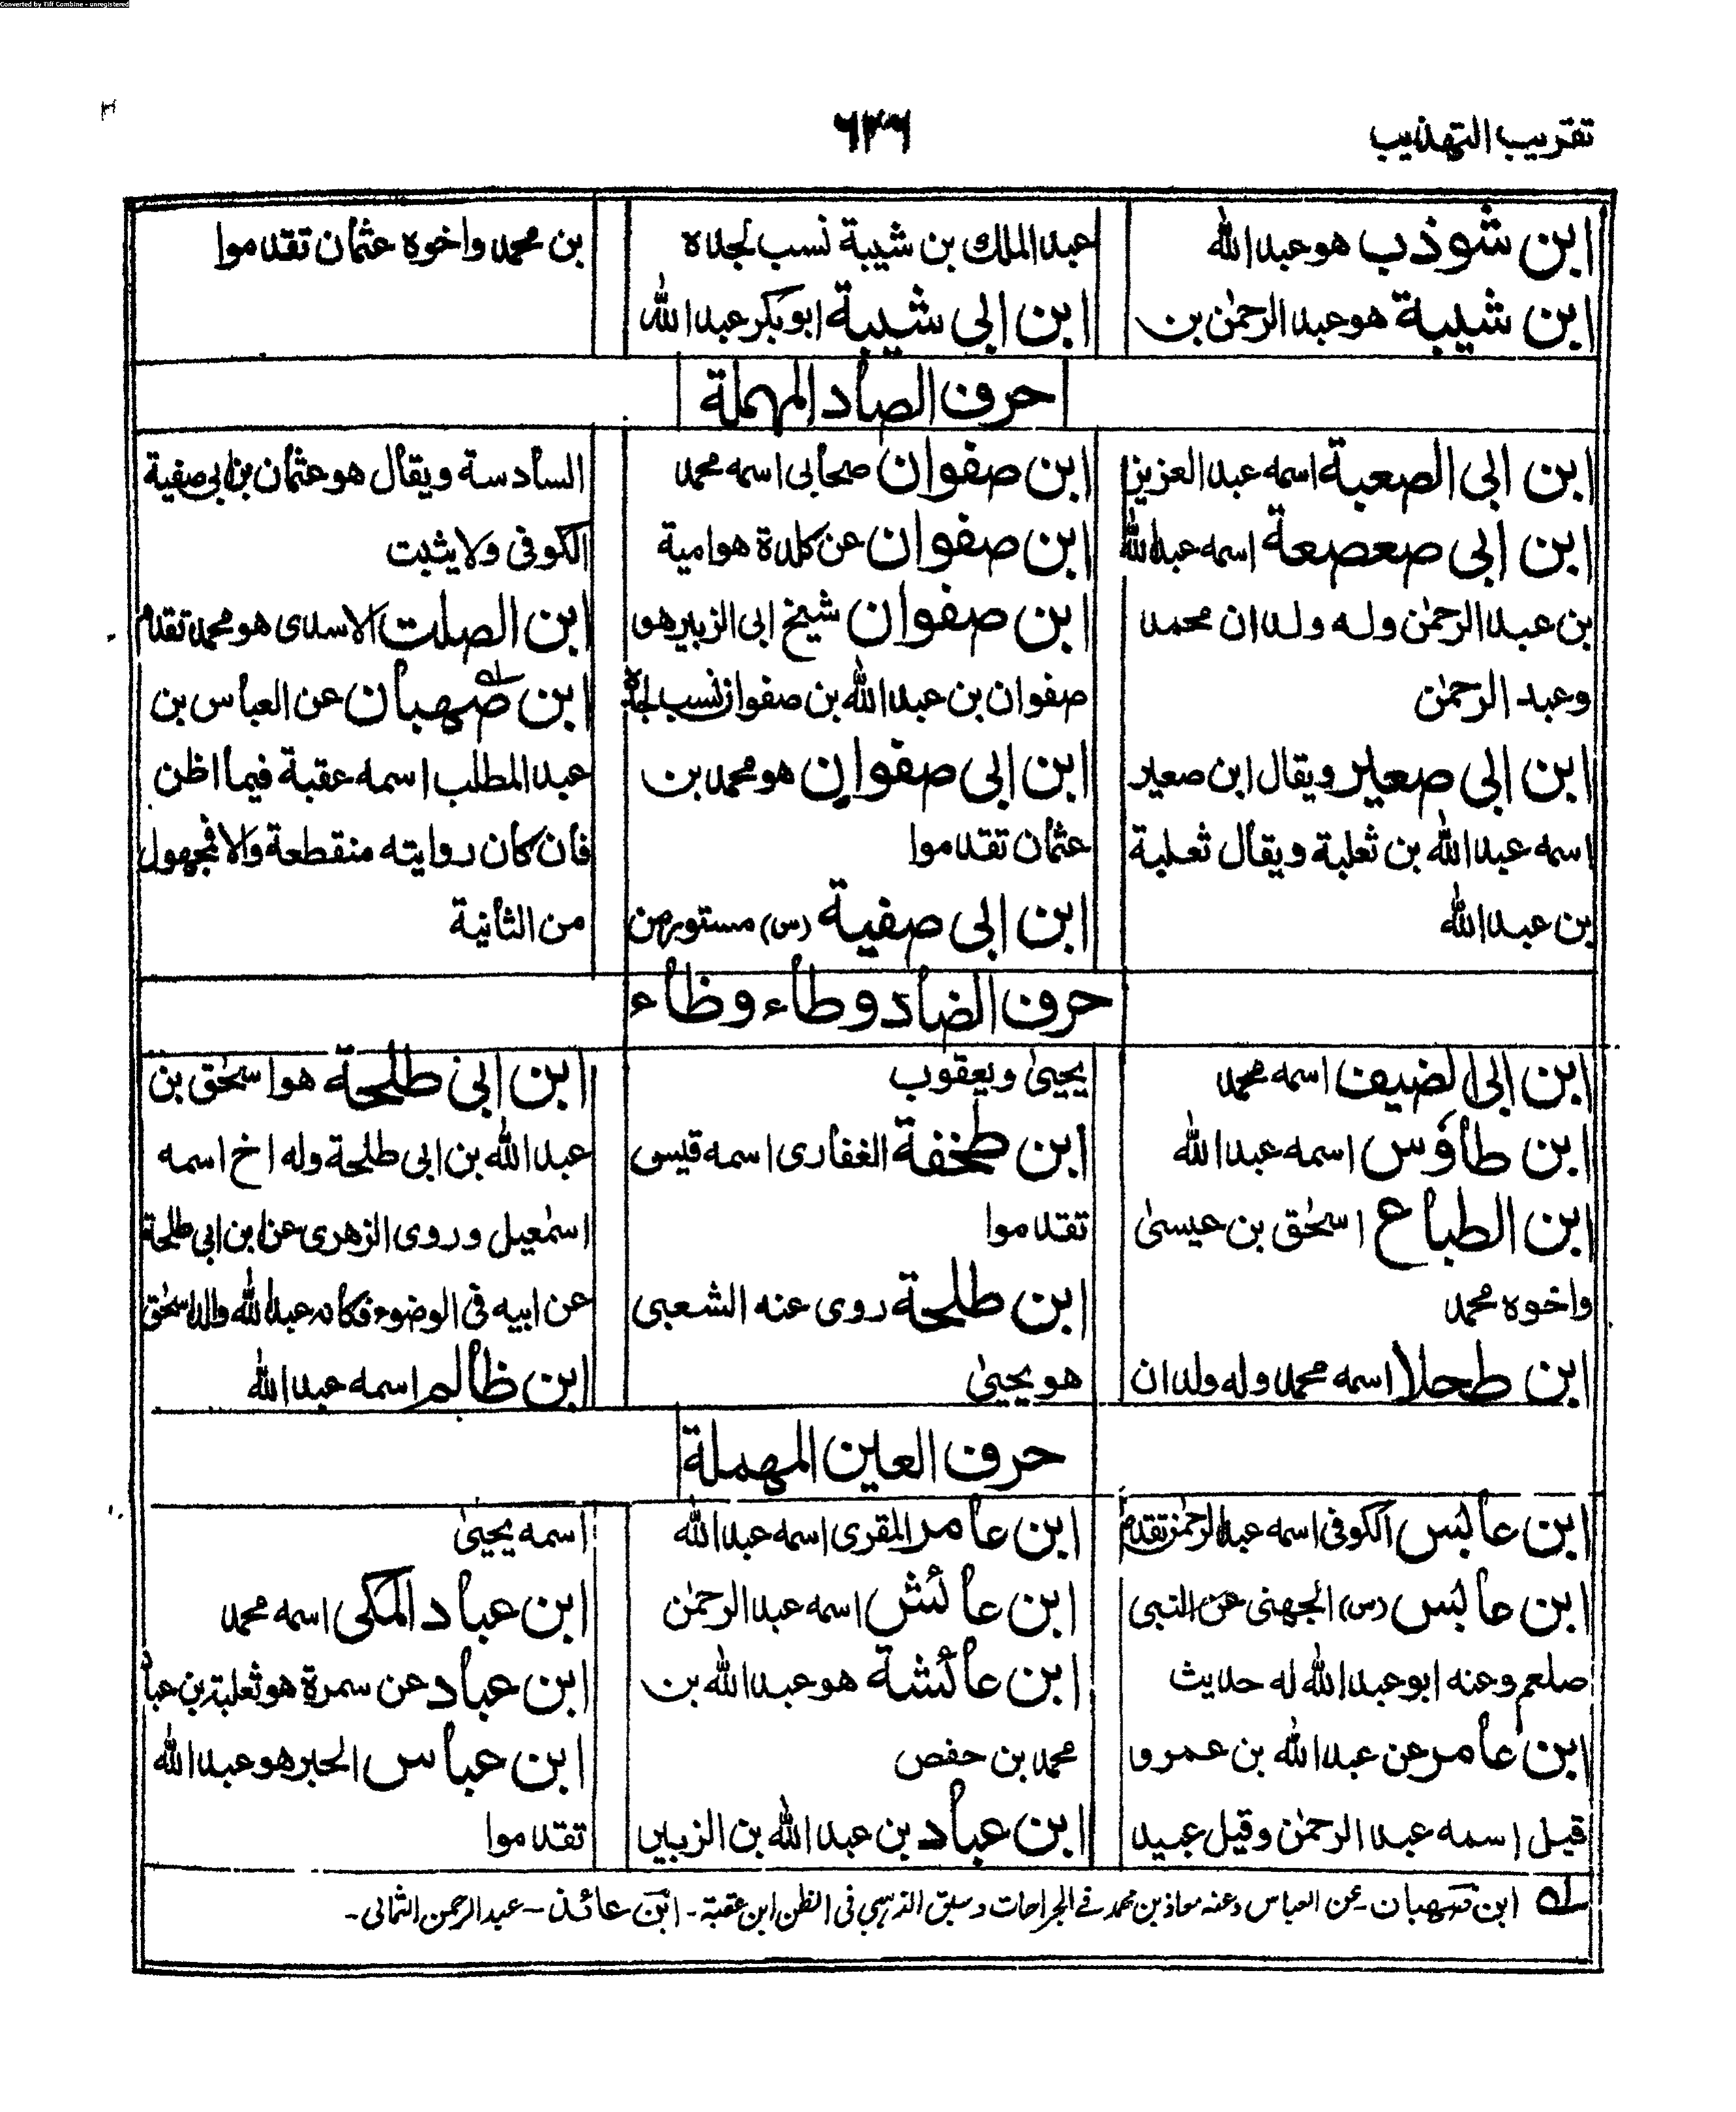 Converted by Tiff Combine - unregistered
تقريب التهذيب
ابن شوذب هو عبد الله
ابن شيبة هو عبد الرحمٰن بن
عبد الملك بن شيبة نسب لجده
ابن ابى شيبة ابو بكر عبد الله
بن محمد واخوه عثمان تقدموا
حرف الصاد المهملة
ابن ابى الصعبة اسمه عبد العزيز
ابن ابى صعصعة اسمه عبد الله
بن عبد الرحمٰن وله ولدان محمد
وعبد الرحمٰن
ابن ابى صعير ويقال ابن صعير
اسمه عبد الله بن ثعلبة ويقال ثعلبة
بن عبد الله
ابن صفوان صحابى اسمه محمد
ابن صفوان عن كلدة هو امية
ابن صفوان شيخ ابى الزبير هو
صفوان بن عبد الله بن صفوان نسب لجده
ابن ابى صفوان هو محمد بن
عثمان تقدموا
ابن ابى صفية (س) مستور من
السادسة ويقال هو عثمان بن ابى صفية
الكوفى ولا يثبت
ابن الصلت الاسدى هو محمد تقدم
ابن صهبان عن العباس بن
عبد المطلب اسمه عقبة فيما اظن
فان كان روايته منقطعة والا فمجهول
من الثانية
حرف الضاد وطاء وظاء
ابن ابى الضيف اسمه محمد
ابن طاؤس اسمه عبد الله
ابن الطباع اسحٰق بن عيسىٰ
واخوه محمد
ابن طحلا اسمه محمد وله ولدان
يحيىٰ ويعقوب
ابن طخفة الغفارى اسمه قيس
تقدموا
ابن طلحة روى عنه الشعبى
هو يحيىٰ
ابن ابى طلحة هو اسحٰق بن
عبد الله بن ابى طلحة وله اخ اسمه
اسمٰعيل وروى الزهرى عن ابن ابى طلحة
عن ابيه فى الوضوء فكانه عبد الله والد اسحٰق
ابن ظالم اسمه عبد الله
حرف العين المهملة
ابن عابس الكوفى اسمه عبد الرحمٰن تقدم
ابن عابس (س) الجهنى عن النبى
صلعم وعنه ابو عبد الله له حديث
ابن عامر عن عبد الله بن عمرو
قيل اسمه عبد الرحمٰن وقيل عبيد
ابن عامر المقرى اسمه عبد الله
ابن عائش اسمه عبد الرحمٰن
ابن عائشة هو عبد الله بن
محمد بن حفص
ابن عباد بن عبد الله بن الزبير
اسمه يحيىٰ
ابن عباد المكى اسمه محمد
ابن عباد عن سمرة هو ثعلبة بن عباد
ابن عباس الحبر هو عبد الله
تقدموا
له ابن صهبان - عن العباس وعنه معاذ بن محمد فى الجراحات وسبق الذهبى فى الظن ابن عقبة - ابن عائذ - عبد الرحمن الثمالى -